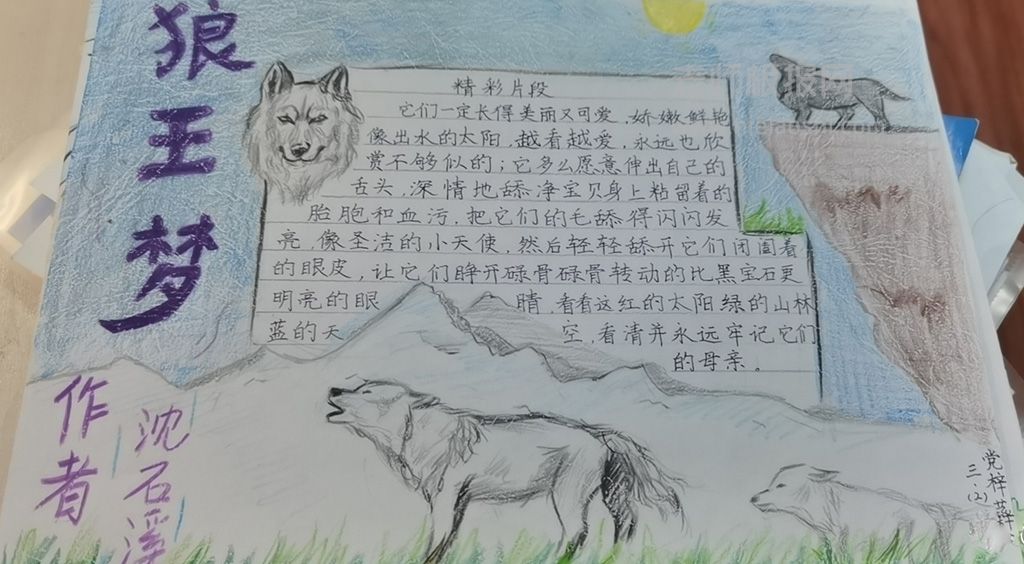 狼王梦
作者
沈石溪
精彩片段
它们一定长得美丽又可爱,娇嫩鲜艳
像出水的太阳,越看越爱,永远也欣
赏不够似的;它多么愿意伸出自己的
舌头,深情地舔净宝贝身上粘留着的
胎胞和血污,把它们的毛舔得闪闪发
亮,像圣洁的小天使,然后轻轻舔开它们闭阖着
的眼皮,让它们睁开碌骨碌骨转动的比黑宝石更
明亮的眼睛,看看这红的太阳绿的山林
蓝的天空,看清并永远牢记它们
的母亲。
三(2)